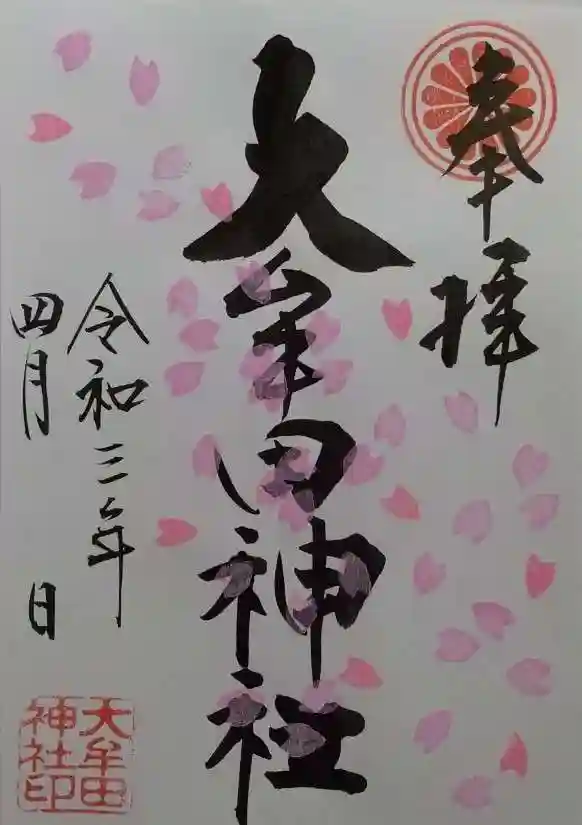 奉拝
大牟田神社
令和三年
四月 日
大牟田
神社印